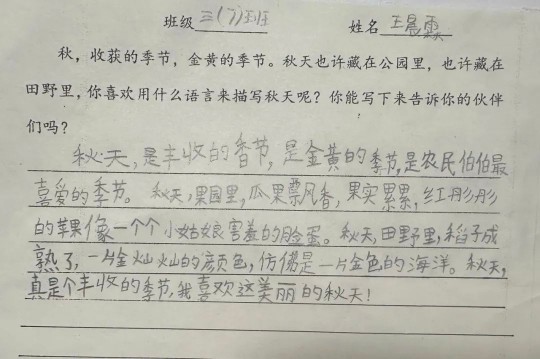 班级三(7)班 姓名王晨霖
秋，收获的季节，金黄的季节。秋天也许藏在公园里，也许藏在
田野里，你喜欢用什么语言来描写秋天呢？你能写下来告诉你的伙伴
们吗？
秋天，是丰收的香节，是金黄的季节，是农民伯伯最
喜爱的季节。秋天，果园里，瓜果飘香，果实累累，红彤彤
的苹果像一个个小姑娘害羞的脸蛋。秋天，田野里，稻子成
熟了，一片金灿灿的颜色，仿佛是一片金色的海洋。秋天，
真是个丰收的季节，我喜欢这美丽的秋天！